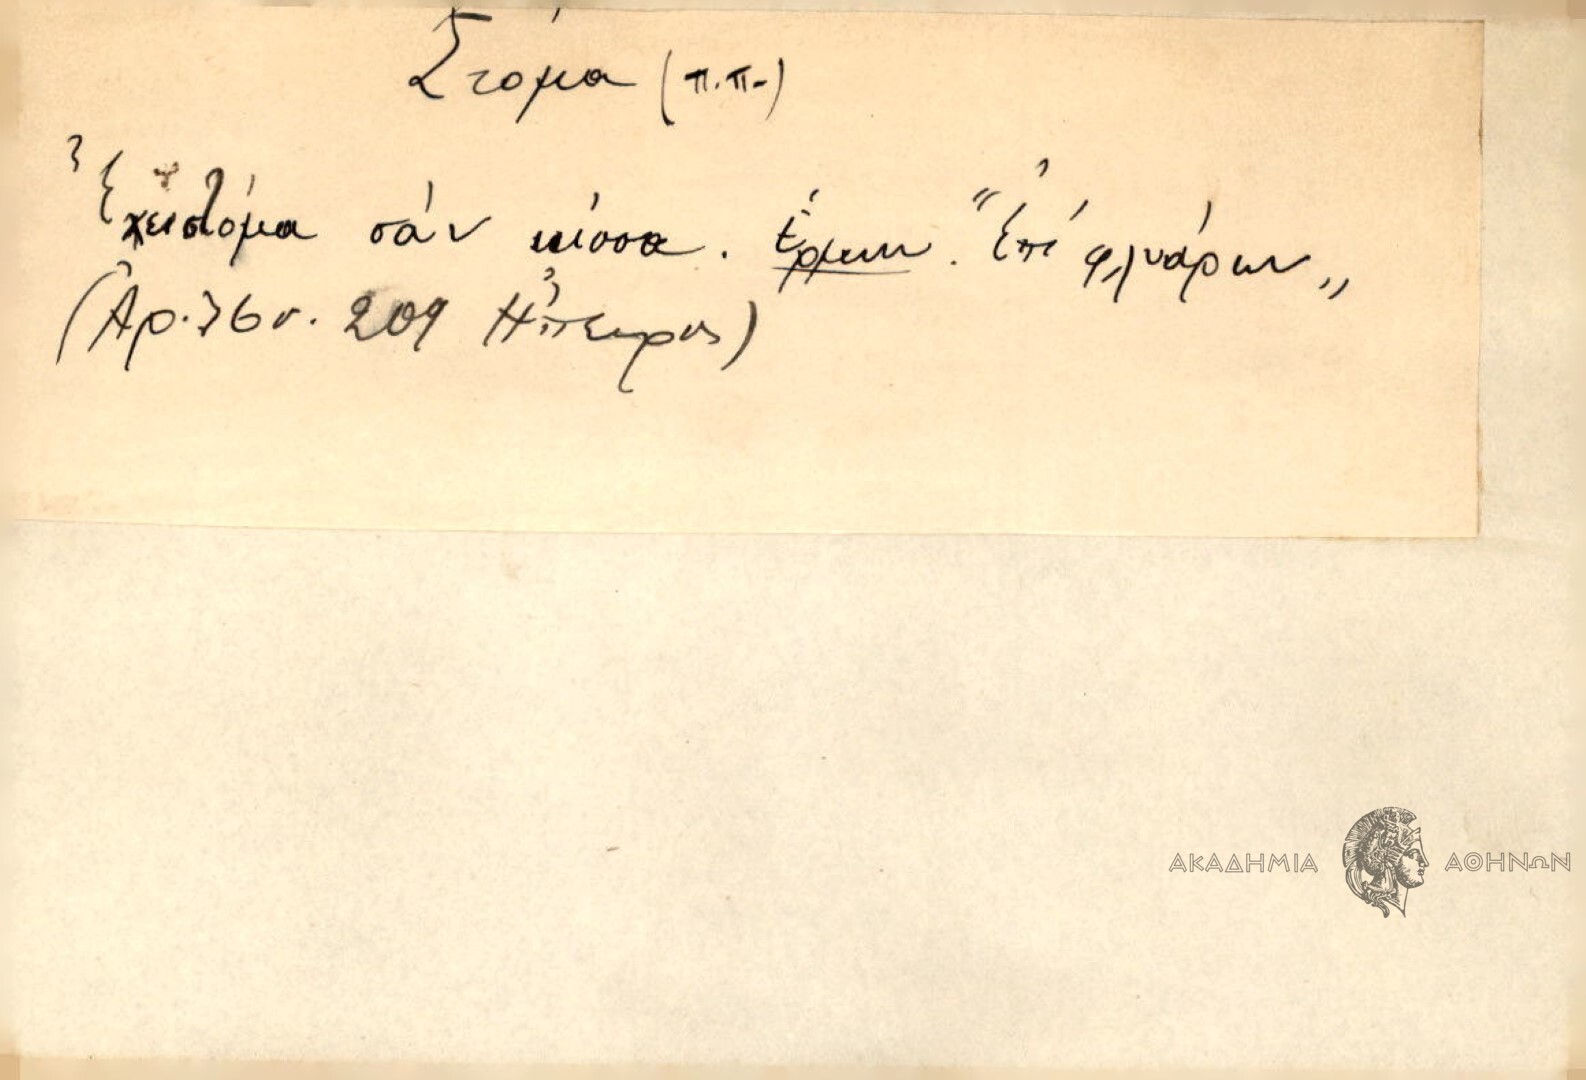 Στόμα (π.π.)
Ἔχει στόμα σάν κίσσα. Ἑρμην. "Ἐπί φλυάρων"
(Ἀρ. 76 σ. 209 Ἤπειρος)
ΑΚΑΔΗΜΙΑ ΑΘΗΝΩΝ